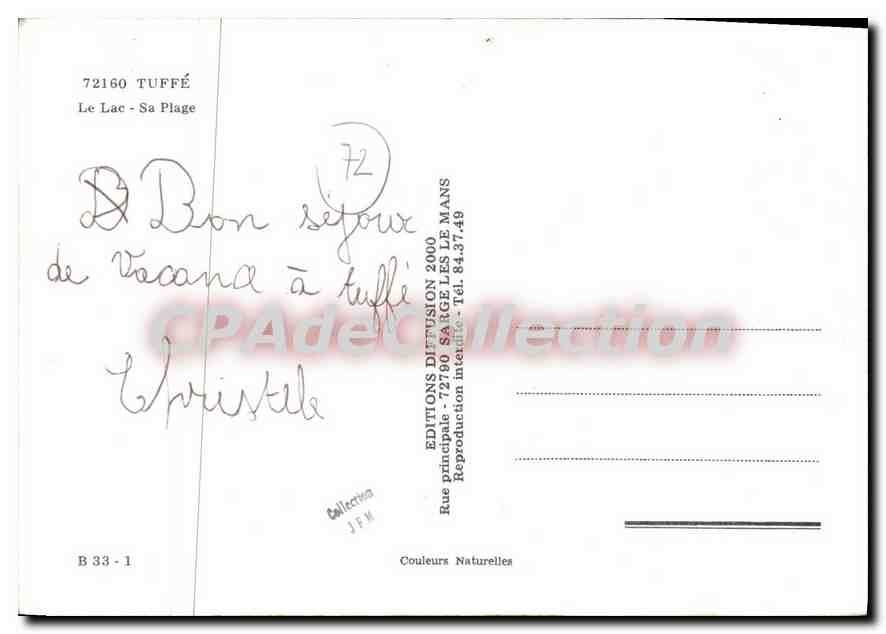 72160 TUFFÉ
Le Lac - Sa Plage
72
B Bon séjour
de Vacand à tuffé
Christele
EDITIONS DIFFUSION 2000
Rue principale - 72790 SARGE LES LE MANS
Reproduction interdite - Tél. 84.37.49
CPAdeCollection
Collection
J F M
B 33 - 1
Couleurs Naturelles